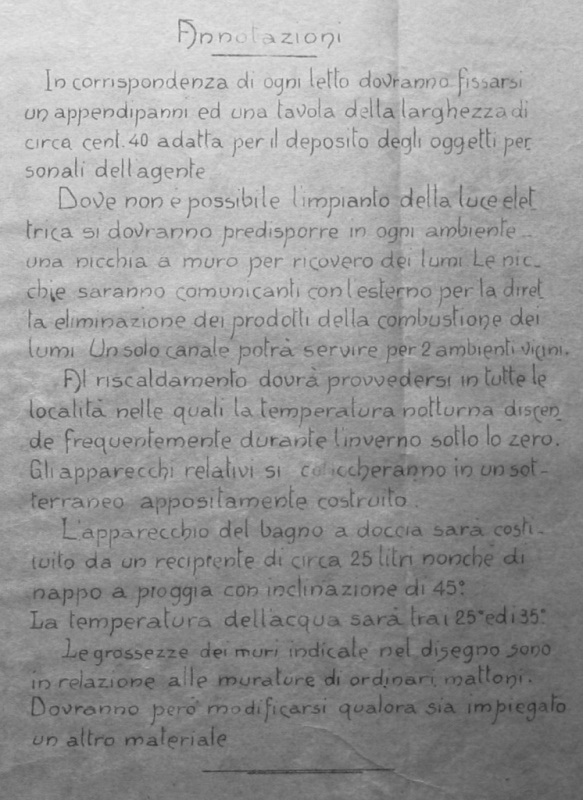 Annotazioni
In corrispondenza di ogni letto dovranno fissarsi
un appendipanni ed una tavola della larghezza di
circa cent. 40 adatta per il deposito degli oggetti per
sonali dell'agente
Dove non è possibile l'impianto della luce elet
trica si dovranno predisporre in ogni ambiente
una nicchia a muro per ricovero dei lumi Le nic_
chie saranno comunicanti con l'esterno per la diret
ta eliminazione dei prodotti della combustione dei
lumi Un solo canale potrà servire per 2 ambienti vicini.
Al riscaldamento dovrà provvedersi in tutte le
località nelle quali la temperatura notturna discen
de frequentemente durante l'inverno sotto lo zero.
Gli apparecchi relativi si in un sot_
terraneo appositamente costruito.
L'apparecchio del bagno a doccia sarà costi_
tuito da un recipiente di circa 25 litri nonchè di
nappo a pioggia con inclinazione di 45°.
La temperatura dell'acqua sarà tra i 25° ed i 35°.
Le grossezze dei muri indicate nel disegno sono
in relazione alle murature di ordinari mattoni.
Dovranno però modificarsi qualora sia impiegato
un altro materiale